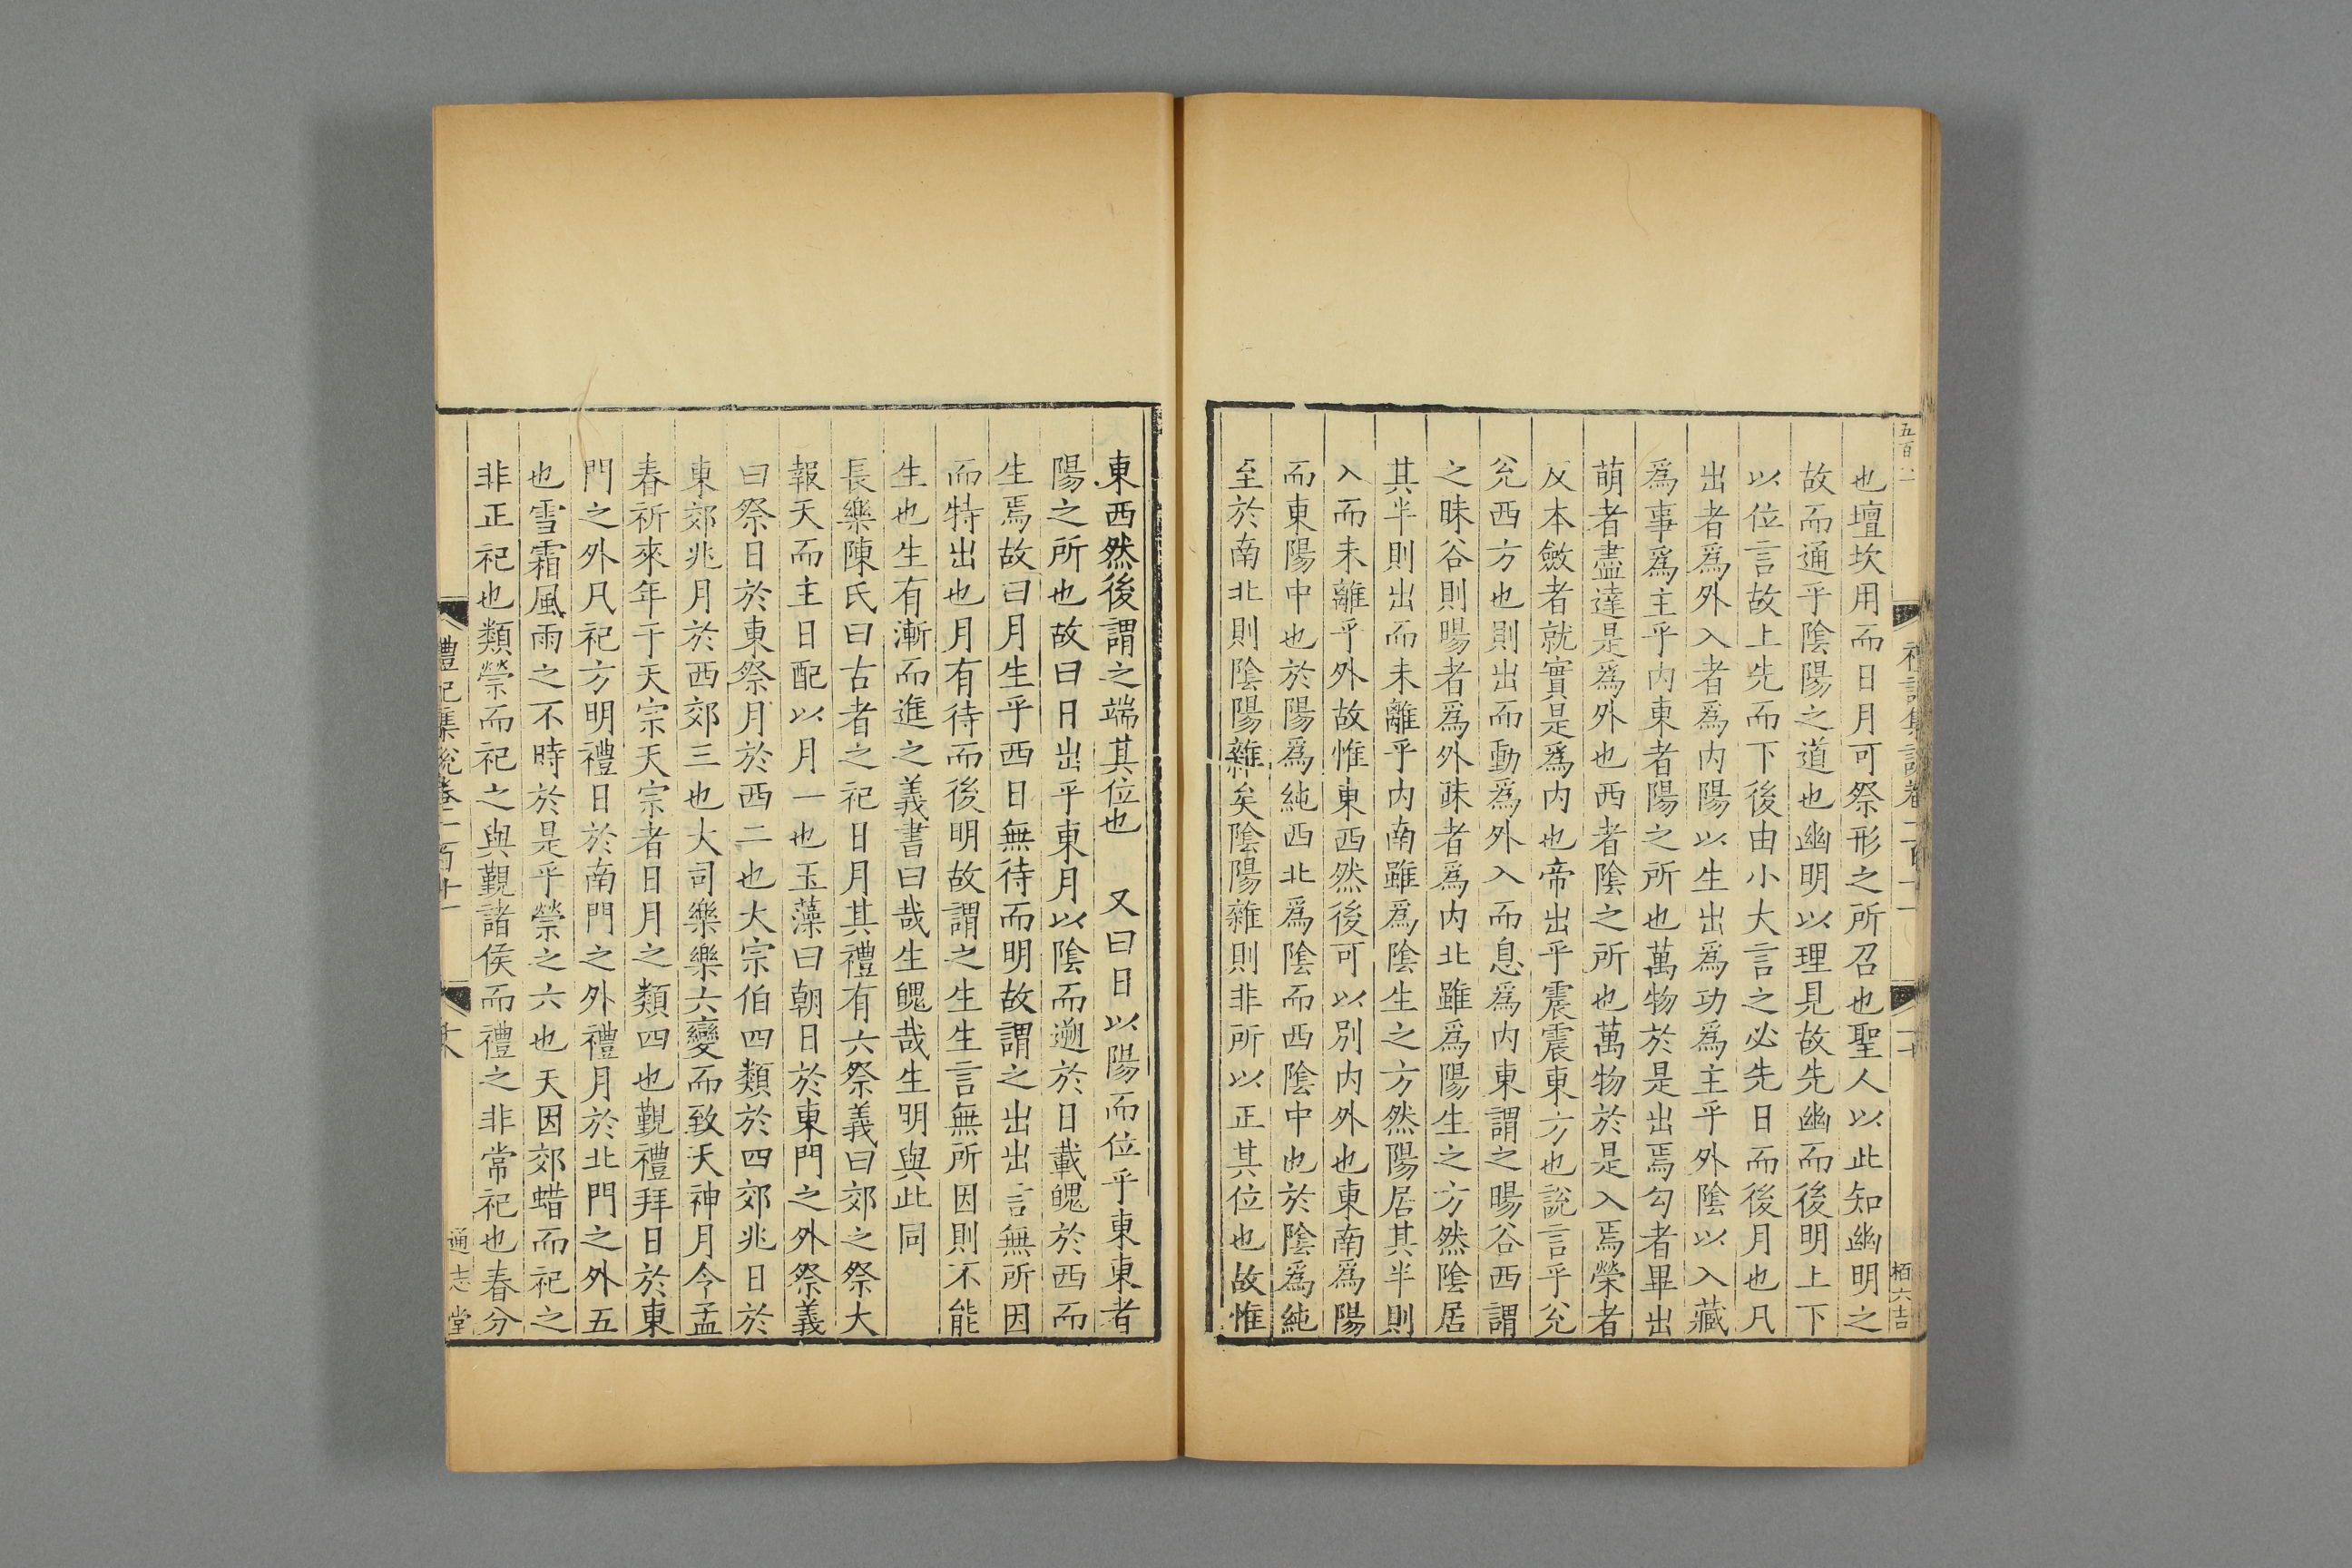 五百
禮記集說卷一百十一
栢六吉
也壇坎用而日月可祭形之所召也聖人以此知幽明之
故而通乎陰陽之道也幽明以理見故先幽而後明上下
以位言故上先而下後由小大言之必先日而後月也凡
出者爲外入者爲内陽以生出爲功爲主乎外陰以入藏
爲事爲主乎内東者陽之所也萬物於是出焉勾者畢出
萌者盡達是爲外也西者陰之所也萬物於是入焉榮者
反本斂者就實是爲内也帝出乎震震東方也說言乎兊
兊西方也則出而動爲外入而息爲内東謂之暘谷西謂
之昧谷則暘者爲外昧者爲内北雖爲陽生之方然陰居
其半則出而未離乎内南雖爲陰生之方然陽居其半則
入而未離乎外故惟東西然後可以別内外也東南爲陽
而東陽中也於陽爲純西北爲陰而西陰中也於陰爲純
至於南北則陰陽雜矣陰陽雜則非所以正其位也故惟
東西然後謂之端其位也　又曰日以陽而位乎東東者
陽之所也故曰日出乎東月以陰而遡於日載魄於西而
生焉故曰月生乎西日無待而明故謂之出出言無所因
而特出也月有待而後明故謂之生生言無所因則不能
生也生有漸而進之義書曰哉生魄哉生明與此同
長樂陳氏曰古者之祀日月其禮有六祭義曰郊之祭大
報天而主日配以月一也玉藻曰朝日於東門之外祭義
曰祭日於東祭月於西二也大宗伯四類於四郊兆日於
東郊兆月於西郊三也大司樂樂六變而致天神月令孟
春祈來年于天宗天宗者日月之類四也覲禮拜日於東
門之外凡祀方明禮日於南門之外禮月於北門之外五
也雪霜風雨之不時於是乎禜之六也天因郊蜡而祀之
非正祀也類禜而祀之與覲諸侯而禮之非常祀也春分
禮記集說卷一百十一
通志堂